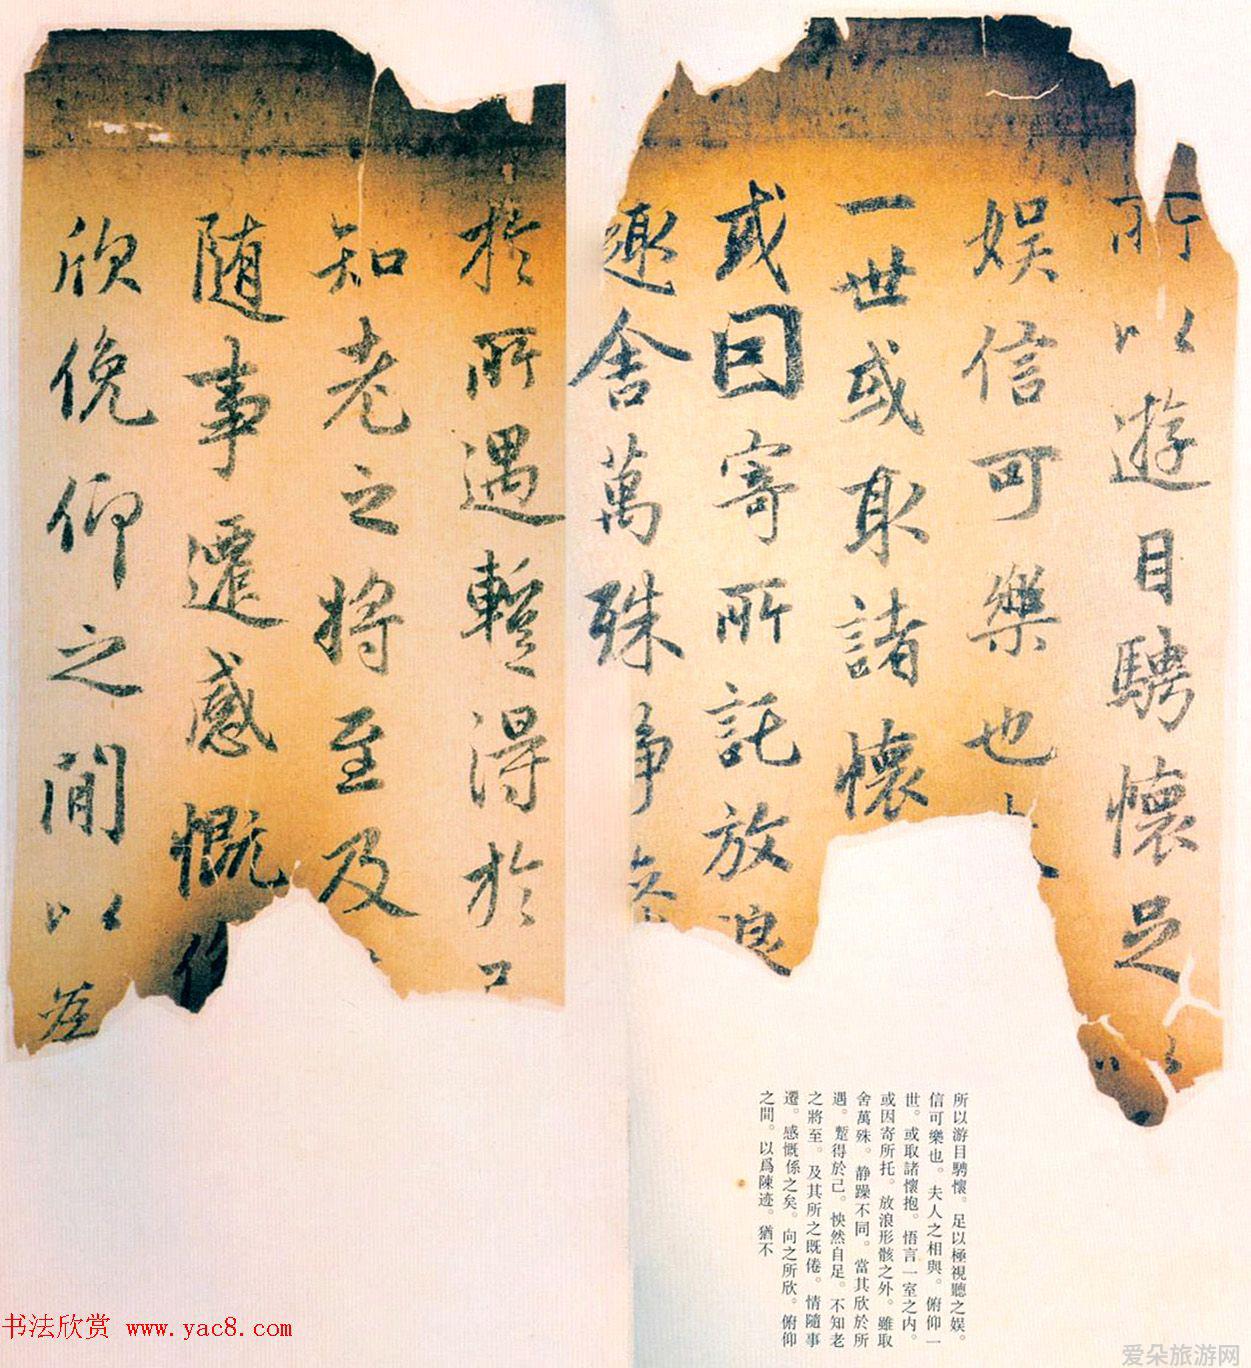 所以遊目騁懷足以
娱信可樂也
一世或取諸懷
或因寄所託放浪
趣舍萬殊静
於所遇暫得於
知老之将至及
随事遷感慨係
欣俛仰之閒以為
所以游目騁懷。足以極視聽之娱。
信可樂也。夫人之相與。俯仰一
世。或取諸懷抱。悟言一室之内。
或因寄所托。放浪形骸之外。雖取
舍萬殊。静躁不同。當其欣於所
遇。蹔得於己。怏然自足。不知老
之將至。及其所之既倦。情隨事
遷。感慨係之矣。向之所欣。俯仰
之間。以爲陳迹。猶不
书法欣赏 www.yac8.com
爱朵旅游网